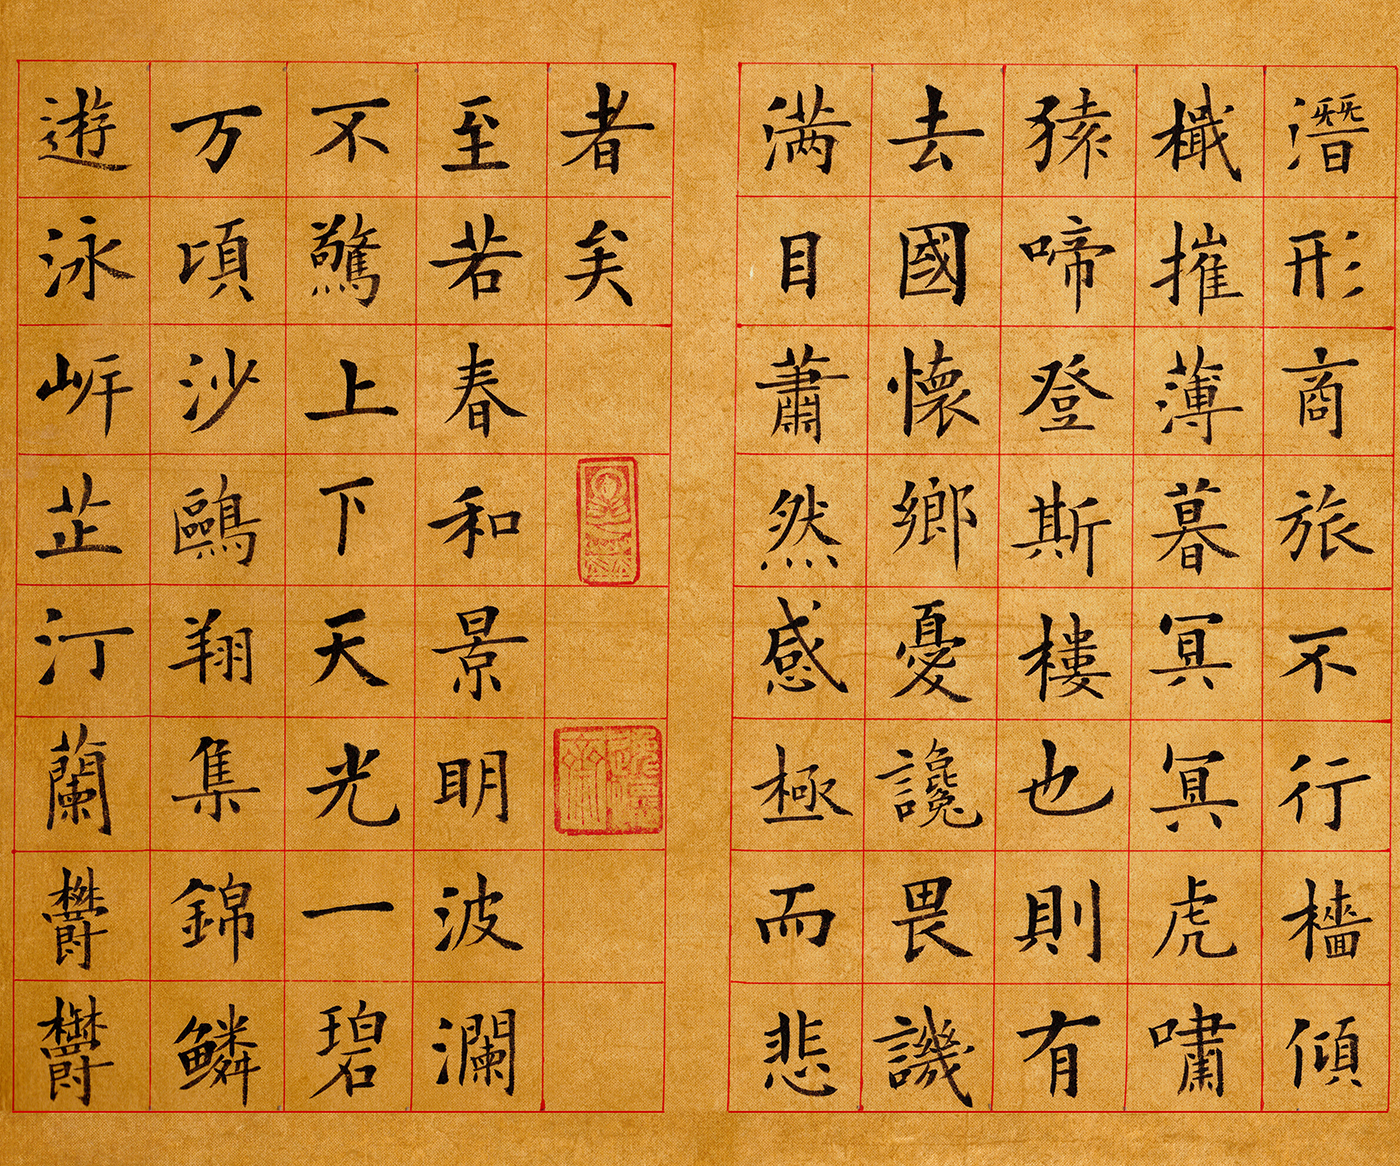 潛形商旅不行檣傾
檝摧薄暮冥冥虎嘯
猿啼登斯樓也則有
去國懷鄉憂讒畏譏
满目蕭然感極而悲
者矣
至若春和景明波瀾
不驚上下天光一碧
万頃沙鷗翔集錦鱗
遊泳岸芷汀蘭鬱鬱